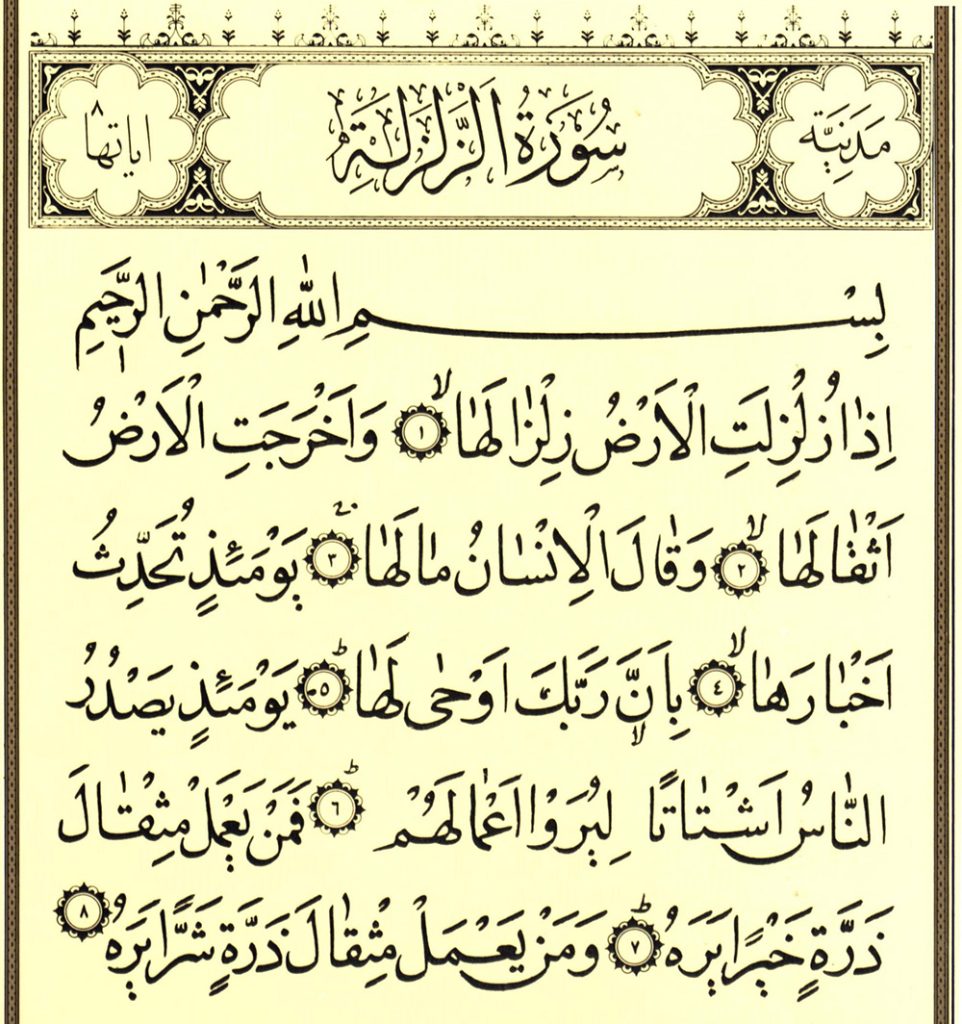 مَدَنِيَّة سُورَةُ الزَّلْزَلَةِ اياتها ٨
بِسْمِ اللّٰهِ الرَّحْمٰنِ الرَّحِيمِ
اِذَا زُلْزِلَتِ الْاَرْضُ زِلْزَالَهَا ۙ ١ وَاَخْرَجَتِ الْاَرْضُ
اَثْقَالَهَا ۙ ٢ وَقَالَ الْاِنْسَانُ مَا لَهَا ۚ ٣ يَوْمَئِذٍ تُحَدِّثُ
اَخْبَارَهَا ۙ ٤ بِاَنَّ رَبَّكَ اَوْحٰى لَهَا ۜ ٥ يَوْمَئِذٍ يَصْدُرُ
النَّاسُ اَشْتَاتًا ۙ لِيُرَوْا اَعْمَالَهُمْ ۜ ٦ فَمَنْ يَعْمَلْ مِثْقَالَ
ذَرَّةٍ خَيْرًا يَرَهُ ۜ ٧ وَمَنْ يَعْمَلْ مِثْقَالَ ذَرَّةٍ شَرًّا يَرَهُ ٨